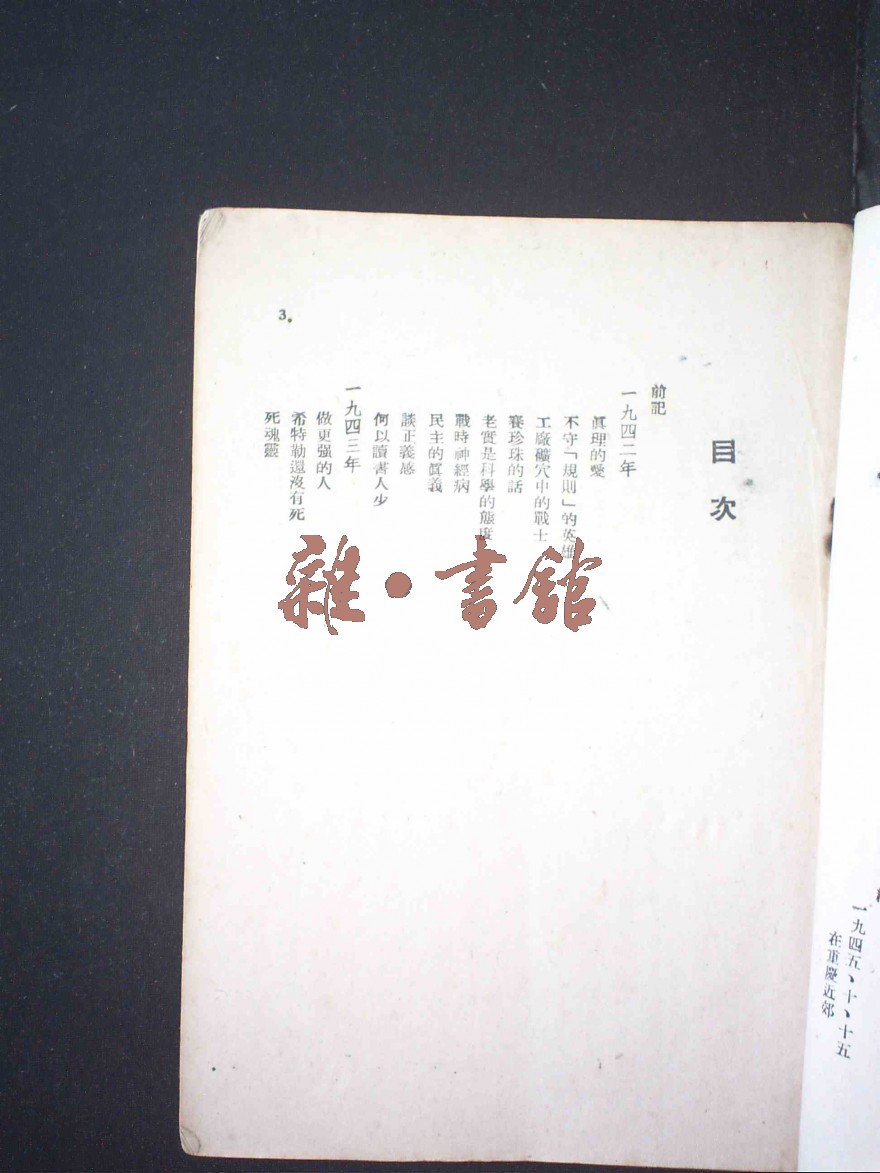 一九四五、十、十五
在重慶近郊
目次
前記
一九四二年
眞理的愛
不守「規則」的英雄
工廠礦穴中的戰士
賽珍珠的話
老實是科學的態度
戰時神經病
民主的眞義
談正義感
何以讀書人少
一九四三年
做更强的人
希特勒還沒有死
死魂靈
3.
雜·書館